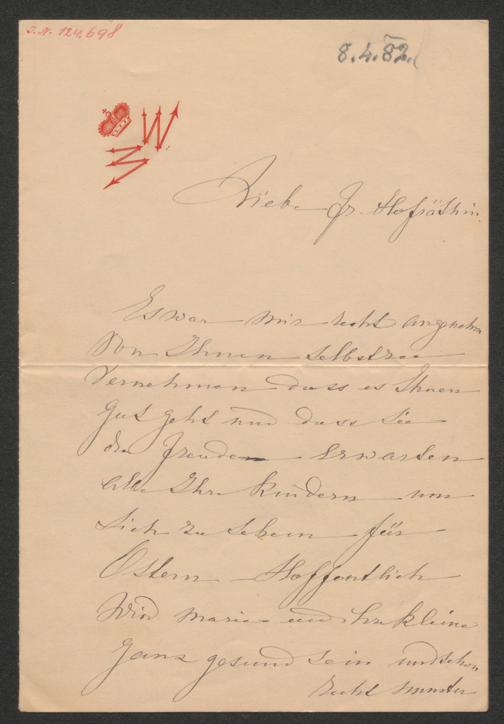 J.N. 124.698
8.4.82.
Liebe Fr. Hofräthin
Es war mir recht angenehm
von Ihnen selbst zu
vernehmen dass es Ihnen
gut geht und dass Sie
die Freuden erwarten
alle Ihre Kindern um
sich zu sehen für
Ostern Hoffentlich
wird Marie und ihr kleine
ganz gesund sein und schon
recht munter